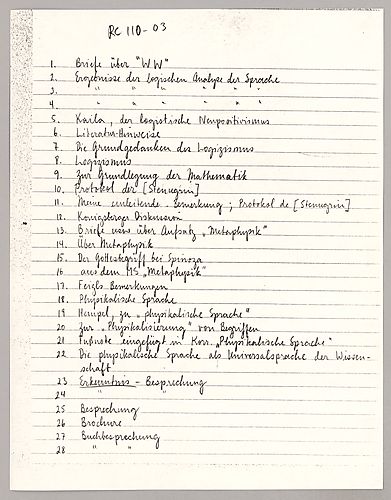 RC 110-03
1. Briefe über "WW"
2. Ergebnisse der logischen Analyse der Sprache
3. " " " " "
4. " " " " "
5. Kaila, der logistische Neupositivismus
6. Literatur-Hinweise
7. Die Grundgedanken des Logizismus
8. Logizismus
9. Zur Grundlegung der Mathematik
10. Protokol der [Stenogrin]
11. Meine einleitende Bemerkung; Protokol de [Stenogrin]
12. Königsberger Diskussion
13. Briefe usw über Aufsatz "Metaphysik"
14. Über Metaphysik
15. Der Gottesbegriff bei Spinoza
16. aus dem MS "Metaphysik"
17. Feigls Bemerkungen
18. Physikalische Sprache
19 Hempel, zu "physikalische Sprache"
20 Zur "Physikalisierung" von Begriffen
21 Fußnote eingefügt in Korr. "Physikalische Sprache"
22 Die physikalische Sprache als Universalsprache der Wissen-
schaft
23 Erkenntnis - Besprechung
24 "
25 Besprechung
26 Brochure
27 Buchbesprechung
28 " "